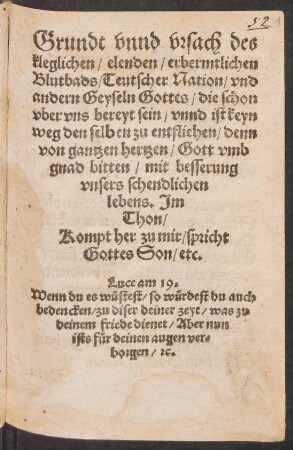 52
Grundt vnnd vrsach des
kleglichen / elenden / erbermtlichen
Blutbads / Teutscher Nation / vnd
andern Geyseln Gottes / die schon
vber vns bereyt sein / vnnd ist keyn
weg den selben zu entfliehen / denn
von gantzen hertzen / Gott vmb
gnad bitten / mit besserung
vnsers schendlichen
lebens. Im
Thon /
Kompt her zu mir / spricht
Gottes Son / etc.
Luce am 19.
Wenn du es wüstest / so würdest du auch
bedencken / zu diser deiner zeyt / was zu
deinem friede dienet / Aber nun
ists für deinen augen ver-
borgen / ꝛc.